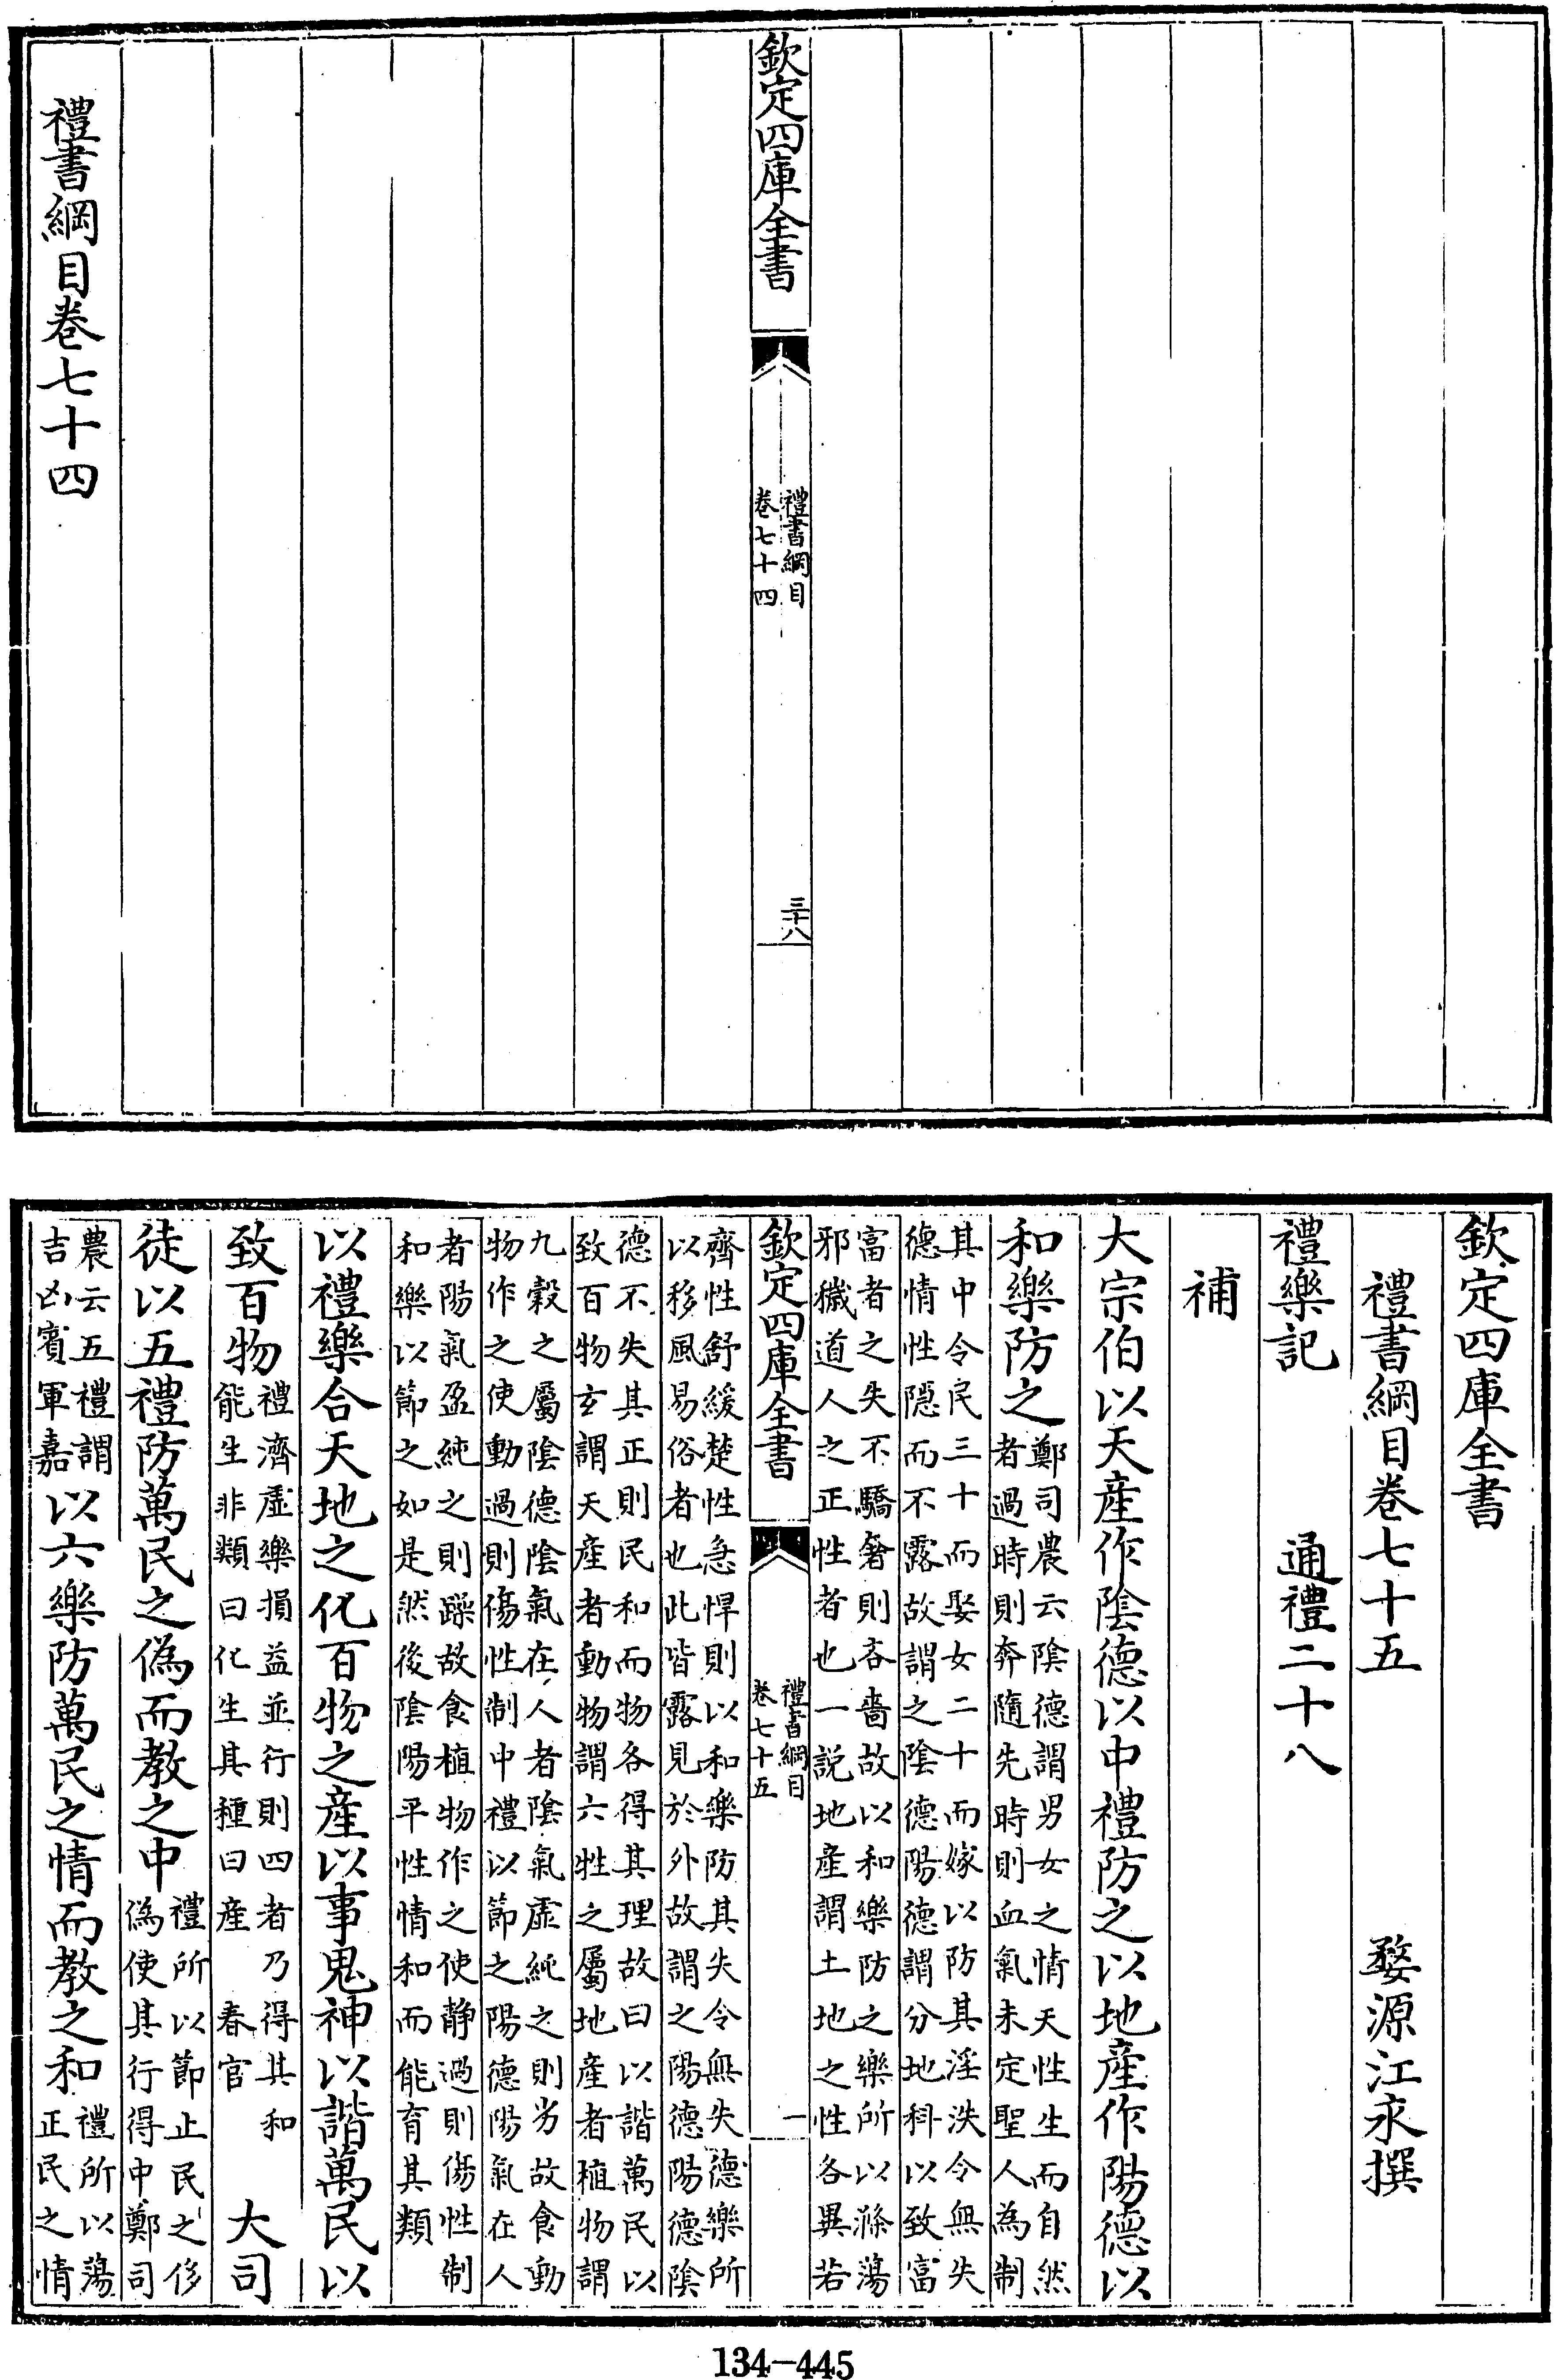 欽定四庫全書
禮書綱目
卷七十四
三十八
禮書綱目卷七十四
欽定四庫全書
禮書綱目卷七十五　婺源江永撰
禮樂記　通禮二十八
補
大宗伯以天產作陰德以中禮防之以地產作陽德以
和樂防之鄭司農云陰德謂男女之情天性生而自然
者過時則奔隨先時則血氣未定聖人為制
其中令民三十而娶女二十而嫁以防其淫泆令無失
德情性隱而不露故謂之陰德陽德謂分地利以致富
富者之失不驕奢則吝嗇故以和樂防之樂所以滌蕩
邪穢道人之正性者也一說地產謂土地之性各異若
欽定四庫全書
禮書綱目
卷七十五
一
齊性舒緩楚性急悍則以和樂防其失令無失德樂所
以移風易俗者也此皆露見於外故謂之陽德陽德陰
德不失其正則民和而物各得其理故曰以諧萬民以
致百物玄謂天產者動物謂六牲之屬地產者植物謂
九穀之屬陰德陰氣在人者陰氣虛純之則劣故食動
物作之使動過則傷性制中禮以節之陽德陽氣在人
者陽氣盈純之則躁故食植物作之使靜過則傷性制
和樂以節之如是然後陰陽平性情和而能育其類
以禮樂合天地之化百物之產以事鬼神以諧萬民以
致百物禮濟虛樂損益並行則四者乃得其和
能生非類曰化生其種曰產　春官　大司
徒以五禮防萬民之偽而教之中禮所以節止民之侈
偽使其行得中鄭司
農云五禮謂
吉凶賓軍嘉以六樂防萬民之情而教之和禮所以蕩
正民之情